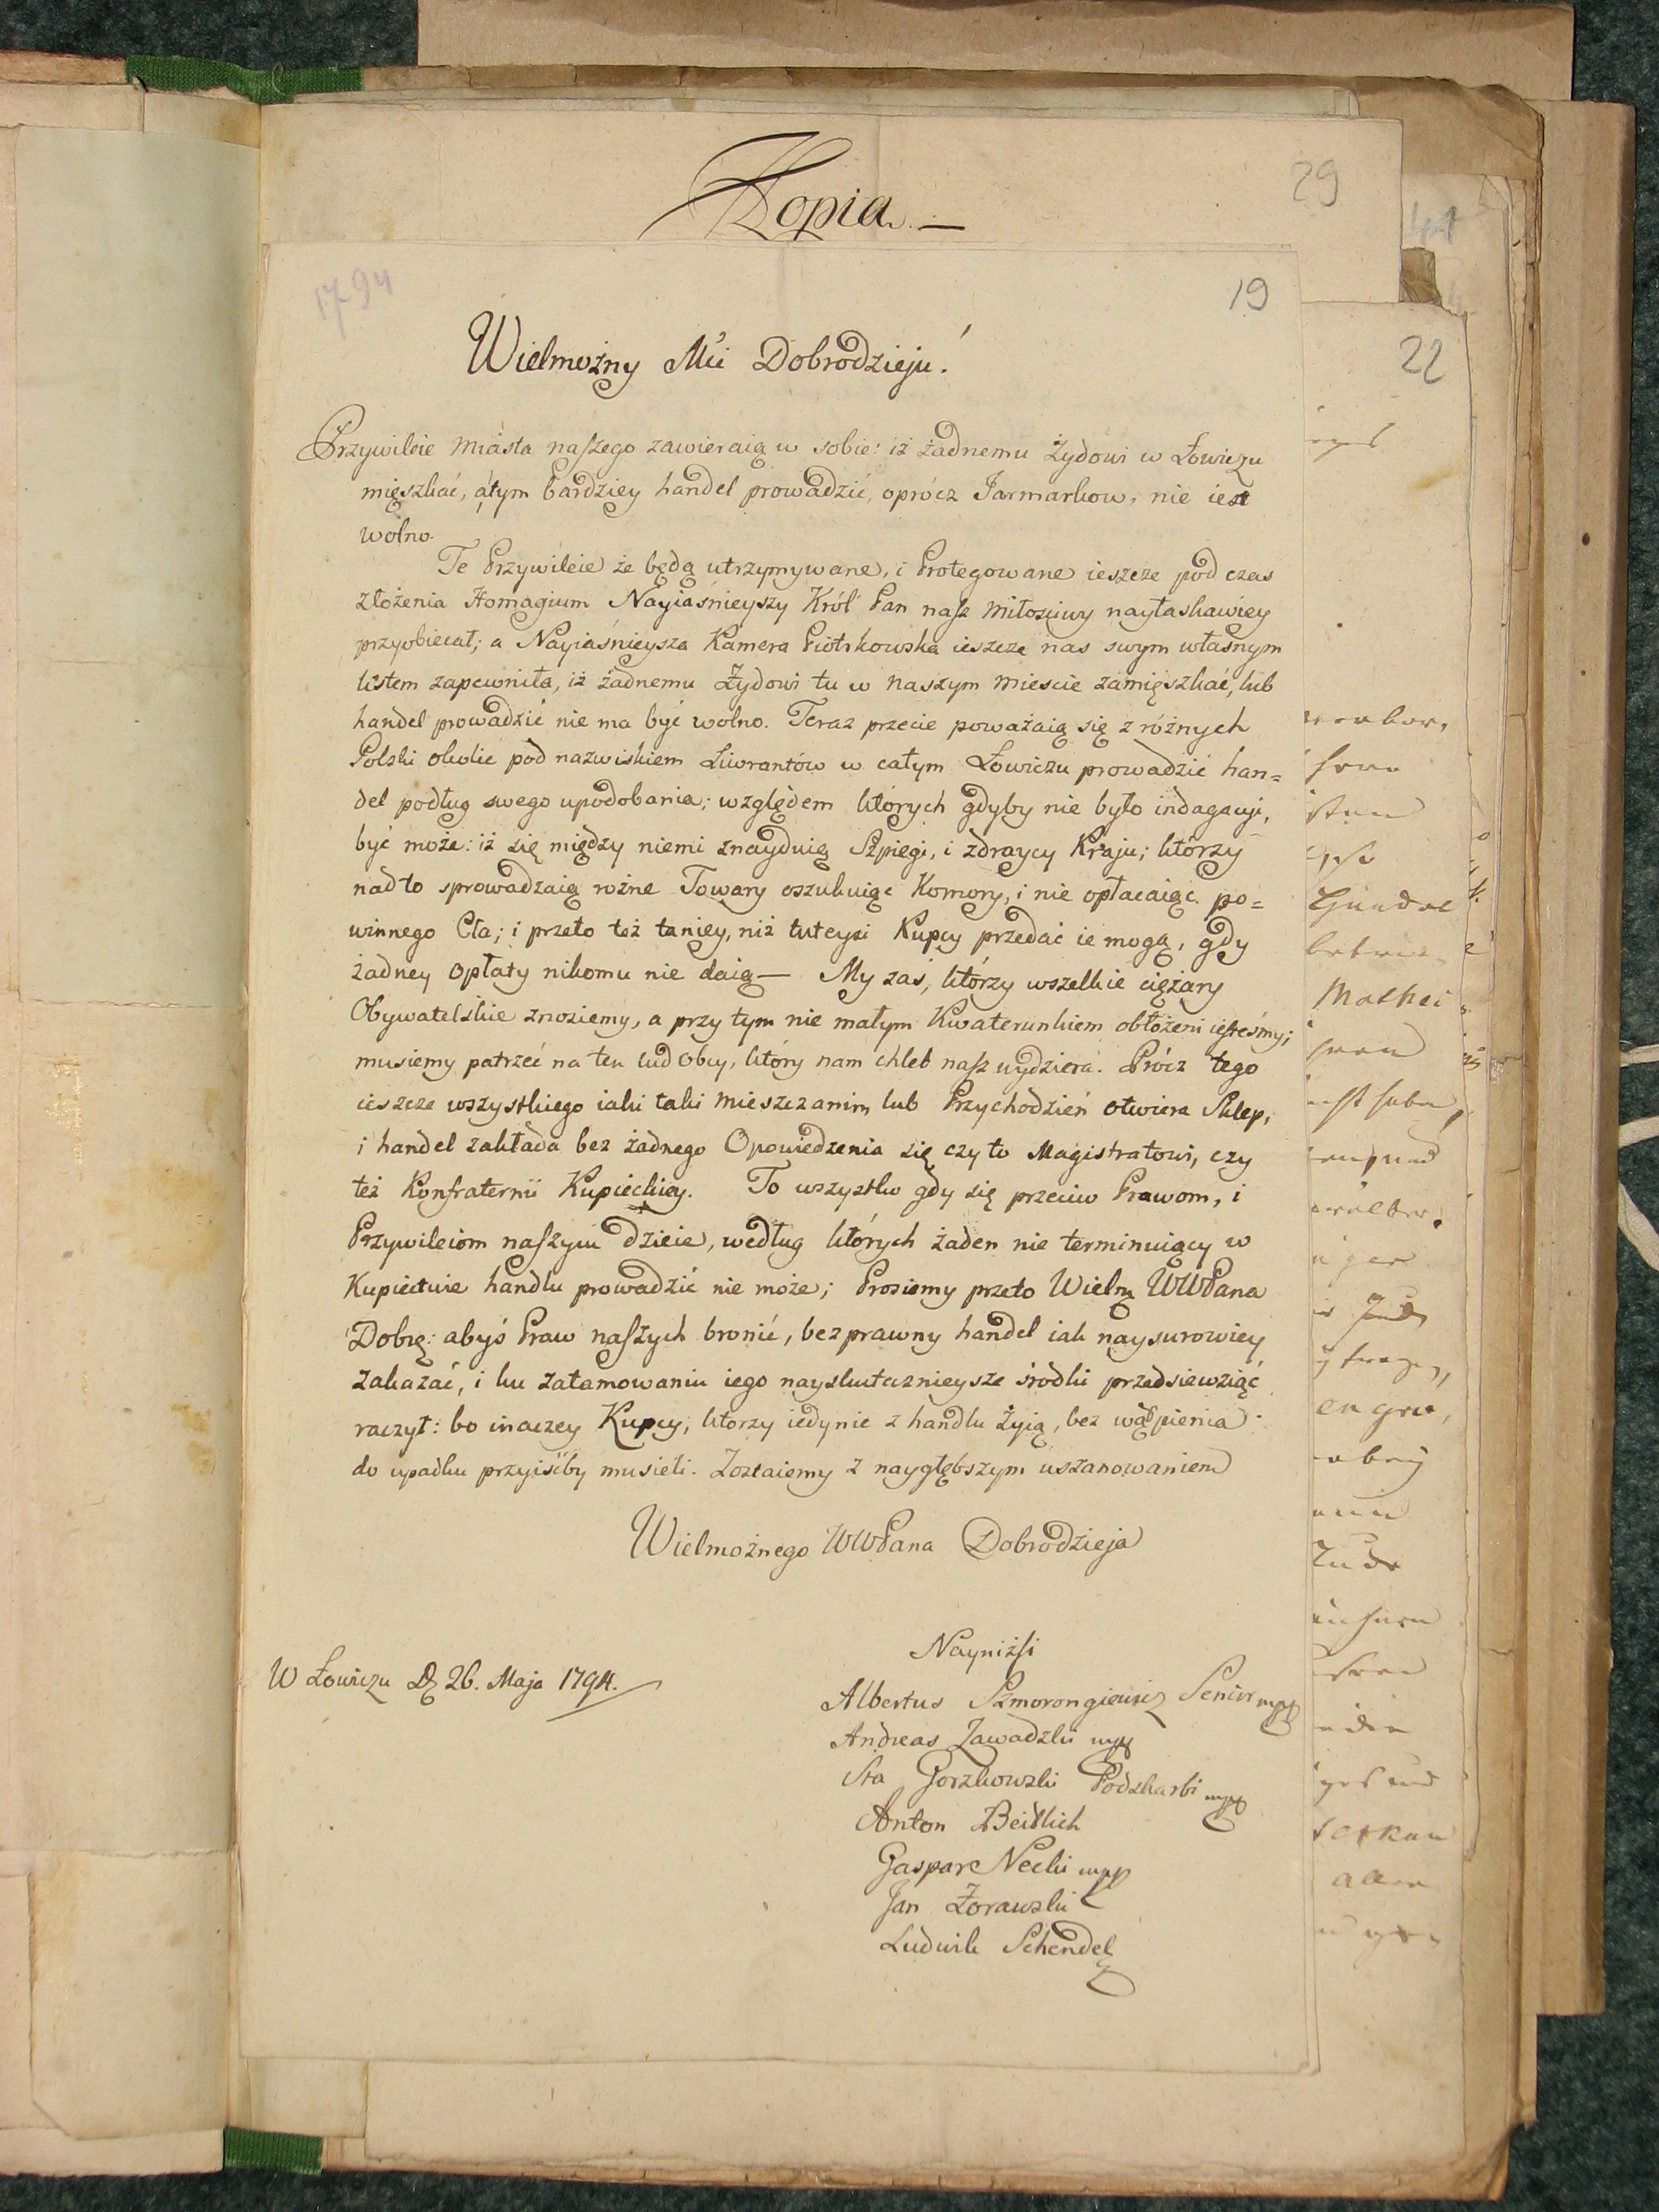 Kopia. —
29
1794
19
22
Wielmożny Mći Dobrodzieju!
Przywileie Miásta naszego zawieraią w sobie: iż żadnemu Żydowi w Łowiczu
mięszkać, á tym bardziey handel prowadzić, oprócz Jarmarkow, nie iest
wolno.
Te Przywileie że będą utrzymywane, i Protegowane ieszcze pod czas
złożenia Homagium Nayiaśnieyszy Król Pan nasz Miłosciwy nayłaskawiey
przyobiecał; a Nayiaśnieysza Kamera Piotrkowska ieszcze nas swym własnym
listem zapewniła, iż żadnemu Żydowi tu w naszym Miescie zamięszkać, lub
handel prowadzić nie ma być wolno. Teraz przecie poważaią się z różnych
Polski okolic pod nazwiskiem Liwrantów w całym Łowiczu prowadzić han=
del podług swego upodobania; względem których gdyby nie było indagacyi,
być może: iż się między niemi znayduią Szpiegi, i zdraycy Kraju; którzy
nad to sprowadzaią rożne Towary oszukuiąc Komory, i nie opłacaiąc po=
winnego Cła; i przeto też taniey, niż tuteysi Kupcy przedać ie mogą, gdy
żadney opłaty nikomu nie daią — My zaś, którzy wszelkie ciężary
Obywatelskie znosiemy, a przy tym nie małym Kwaterunkiem obłożeni iesteśmy;
musiemy patrzeć na ten lud obcy, który nam chleb nasz wydziera. Prócz tego
ieszcze wszystkiego iaki taki Mieszczanin lub Przychodzień otwiera Sklep,
i handel zakłada bez żadnego Opowiedzenia się czy to Magistratowi, czy
też Konfraternii Kupieckiey. To wszystko gdy się przeciw Prawom, i
Przywileiom naszym dzieie, według których żaden nie terminuiący w
Kupiectwie handlu prowadzić nie może; Prosiemy przeto Wielm WWPana
Dobrę: abyś Praw naszych bronić, bezprawny handel iak naysurowiey
zakazać, i ku zatamowaniu iego nayskutecznieysze środki przedsiewziąć
raczył: bo inaczey Kupcy, ktorzy iedynie z handlu żyią, bez wątpienia
do upadku przyiśćby musieli. Zostaiemy z naygłębszym uszanowaniem
Wielmożnego WWPana Dobrodzieja
W Łowiczu D 26. Maja 1794.
Nayniżsi
Albertus Szmorongiewicz Senior mpp
Andreas Zawadzki mpp
Sta Gorzkowski Podskarbi mpp
Anton Beidlich
Gaspare Necki mpp
Jan Żorawski
Ludwik Schendel